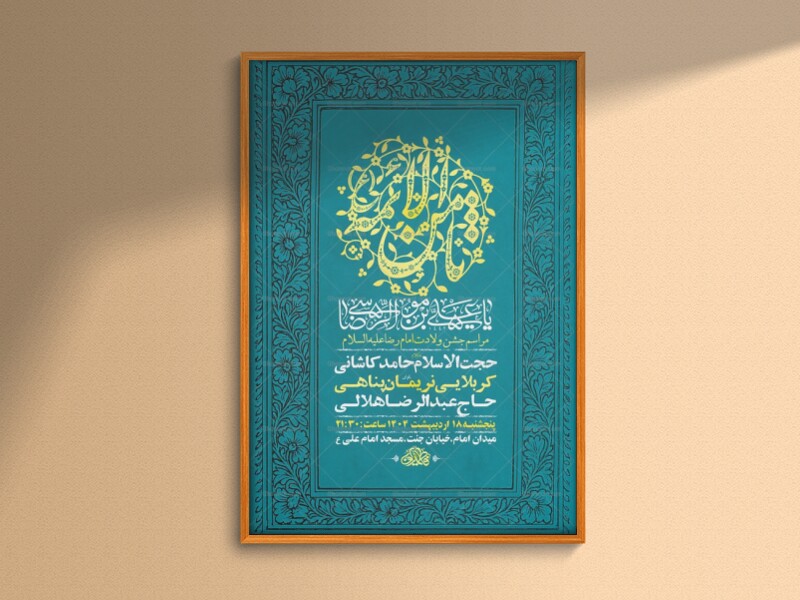 ثامن الائمه
یا علی بن موسی الرضا
مراسم جشن ولادت امام رضا علیه السلام
حجت الاسلام حامد کاشانی
کربلایی نریمان پناهی
حاج عبدالرضا هلالی
پنجشنبه ۱۸ اردیبهشت ۱۴۰۴ ساعت: ۲۱:۳۰
میدان امام.خیابان جنت.مسجد امام علی ع